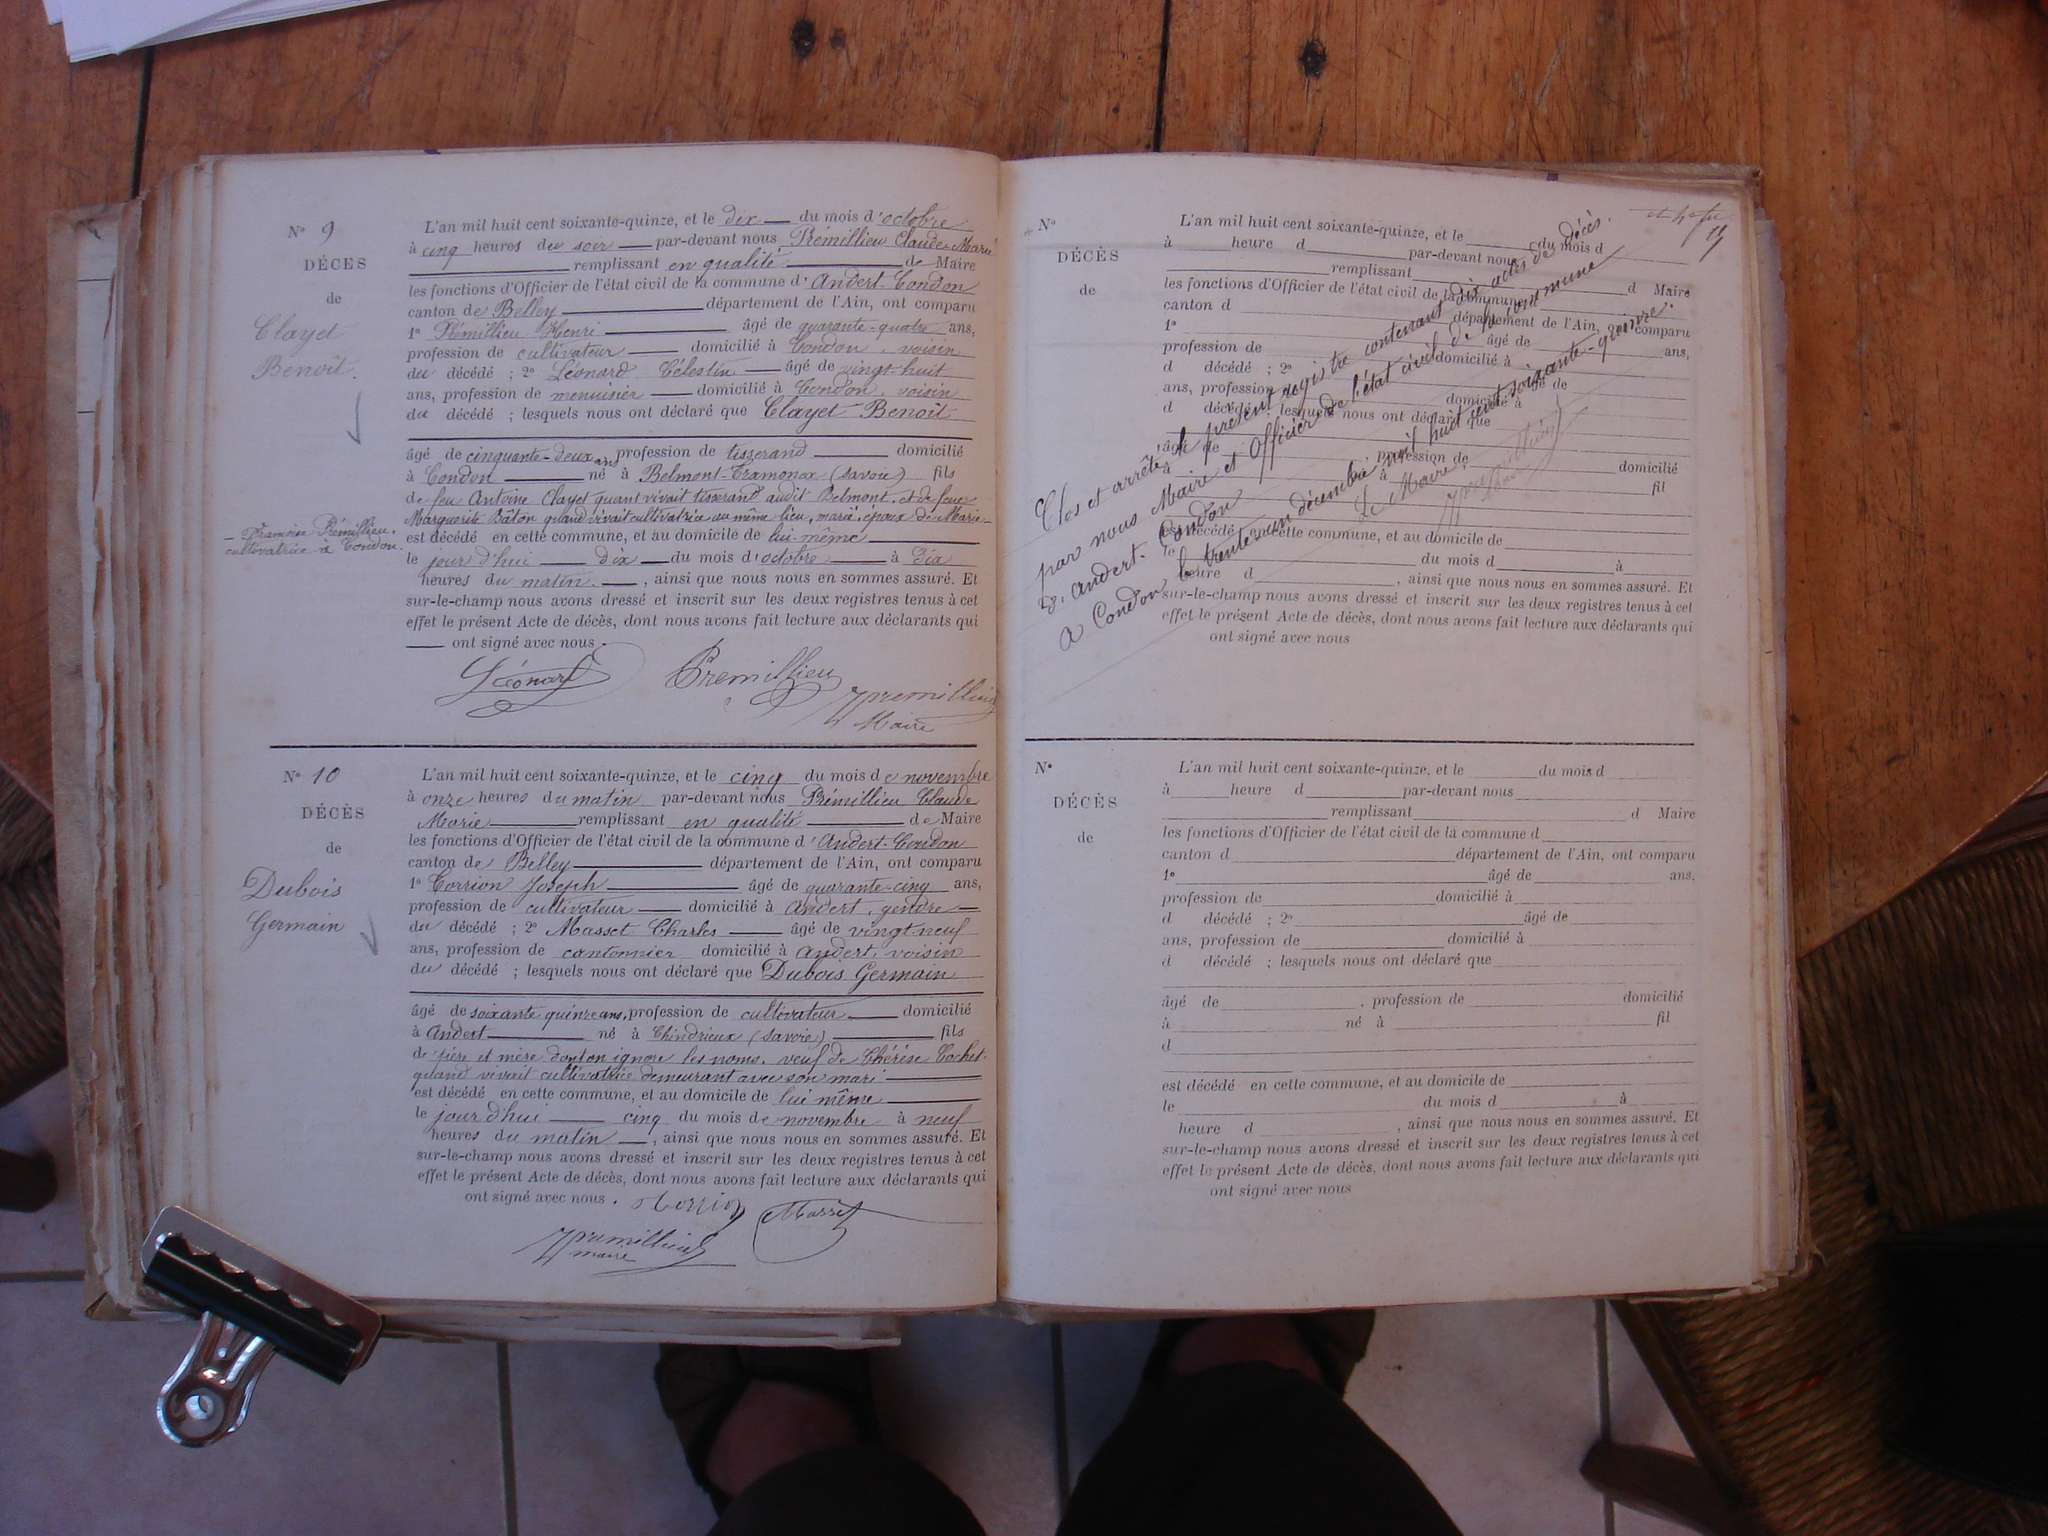 N° 9
DÉCES
de
Clayet
Benoît.
L'an mil huit cent soixante-quinze, et le dix du mois d'octobre
à cinq heures du soir par-devant nous, Prémillieu Claude Marie
remplissant en qualité de Maire
les fonctions d'Officier de l'état civil de la commune d'Andert-Condon
canton de Belley département de l'Ain, ont comparu
1° Prémillieu Henri âgé de quarante-quatre ans,
profession de cultivateur domicilié à Condon, voisin
du décédé ; 2° Léonard Célestin âgé de vingt-huit
ans, profession de menuisier domicilié à Condon, voisin
du décédé ; lesquels nous ont déclaré que Clayet Benoît
âgé de cinquante-deux ans profession de tisserand domicilié
à Condon né à Belmont-Tramonex (Savoie) fils
de feu Antoine Clayet quant vivait tisserand audit Belmont, et de feue
Marguerite Bâton quand vivait cultivatrice au même lieu, marié, époux de Marie-
- Framoise Prémillieu,
cultivatrice à Condon.
est décédé en cette commune, et au domicile de lui-même
le jour d'hui dix du mois d'octobre à dix
heures du matin , ainsi que nous nous en sommes assuré. Et
sur-le-champ nous avons dressé et inscrit sur les deux registres tenus à cet
effet le présent Acte de décès, dont nous avons fait lecture aux déclarants qui
ont signé avec nous.
Léonard Premillieu
Premillieu
Maire
N° 10
DÉCÈS
de
Dubois
Germain
L'an mil huit cent soixante-quinze, et le cinq du mois de novembre
à onze heures du matin par-devant nous Prémillieu Claude
Marie remplissant en qualité de Maire
les fonctions d'Officier de l'état civil de la commune d'Andert-Condon
canton de Belley département de l'Ain, ont comparu
1° Corrion Joseph âgé de quarante-cinq ans,
profession de cultivateur domicilié à Andert, gendre
du décédé ; 2° Masset Charles âgé de vingt neuf
ans, profession de cantonnier domicilié à Andert, voisin
du décédé ; lesquels nous ont déclaré que Dubois Germain
âgé de soixante quinze ans, profession de cultivateur domicilié
à Andert né à Chindrieux (Savoie) fils
de père et mère dont on ignore les noms, veuf de Thérèse Cochet
quand vivait cultivatrice demeurant avec son mari
est décédé en cette commune, et au domicile de lui même
le jour d'hui cinq du mois de novembre à neuf
heures du matin , ainsi que nous nous en sommes assuré. Et
sur-le-champ nous avons dressé et inscrit sur les deux registres tenus à cet
effet le présent Acte de décès, dont nous avons fait lecture aux déclarants qui
ont signé avec nous. Corrion Masset
Premillieu
maire
N°
DÉCÈS
de
L'an mil huit cent soixante-quinze, et le du mois d
à heure d par-devant nous
remplissant d Maire
les fonctions d'Officier de l'état civil de la commune
canton d département de l'Ain, ont comparu
1° âgé de ans,
profession de domicilié à
d décédé ; 2° âgé de
ans, profession de domicilié à
d décédé ; lesquels nous ont déclaré que
âgé de profession de domicilié
à né à fil
est décédé en cette commune, et au domicile de
le du mois d à
heure d , ainsi que nous nous en sommes assuré. Et
sur-le-champ nous avons dressé et inscrit sur les deux registres tenus à cet
effet le présent Acte de décès, dont nous avons fait lecture aux déclarants qui
ont signé avec nous
Clos et arrêté le présent registre contenant dix actes de décès.
par nous Maire et Officier de l'état civil de la commune
d'Andert-Condon
A Condon le trente un décembre mil huit cent soixante-quinze.
Le Maire
N°
DÉCÈS
de
L'an mil huit cent soixante-quinze, et le du mois d
à heure d par-devant nous
remplissant d Maire
les fonctions d'Officier de l'état civil de la commune d
canton d département de l'Ain, ont comparu
1° âgé de ans,
profession de domicilié à
d décédé ; 2° âgé de
ans, profession de domicilié à
d décédé ; lesquels nous ont déclaré que
âgé de , profession de domicilié
à né à fil
d
est décédé en cette commune, et au domicile de
le du mois d à
heure d , ainsi que nous nous en sommes assuré. Et
sur-le-champ nous avons dressé et inscrit sur les deux registres tenus à cet
effet le présent Acte de décès, dont nous avons fait lecture aux déclarants qui
ont signé avec nous